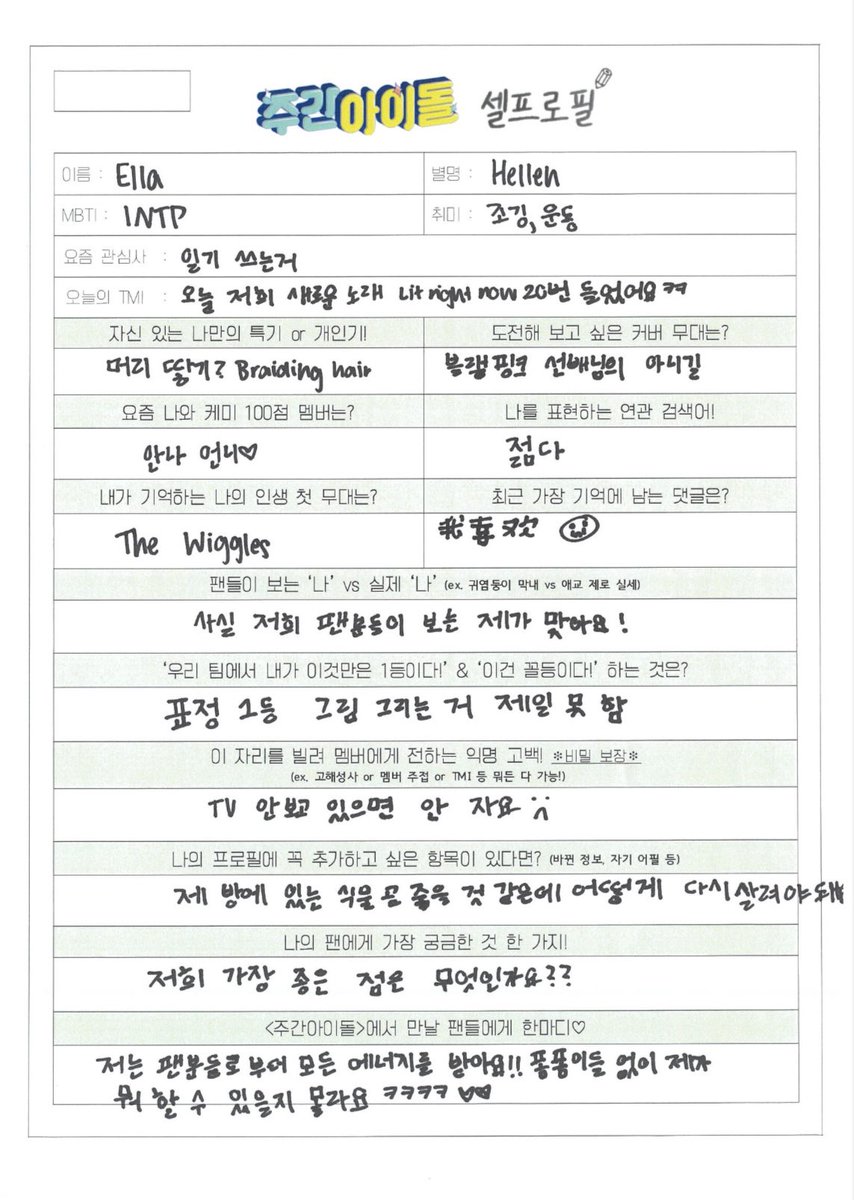 주간아이돌 셀프로필
이름 : Ella 별명 : Hellen
MBTI : INTP 취미 : 조깅, 운동
요즘 관심사 : 일기 쓰는거
오늘의 TMI : 오늘 저희 새로운 노래 Lit right now 20번 들었어요 ㅋㅋ
자신 있는 나만의 특기 or 개인기! 도전해 보고 싶은 커버 무대는?
머리 땋기? Braiding hair 블랙핑크 선배님의 아니길
요즘 나와 케미 100점 멤버는? 나를 표현하는 연관 검색어!
안나 언니♡ 젊다
내가 기억하는 나의 인생 첫 무대는? 최근 가장 기억에 남는 댓글은?
The Wiggles 我喜欢 ☺
팬들이 보는 ‘나’ vs 실제 ‘나’ (ex. 귀염둥이 막내 vs 애교 제로 실세)
사실 저희 팬분들이 보는 제가 맞아요!
‘우리 팀에서 내가 이것만은 1등이다!’ & ‘이건 꼴등이다!’ 하는 것은?
표정 1등 그림 그리는 거 제일 못 함
이 자리를 빌려 멤버에게 전하는 익명 고백! *비밀 보장*
(ex. 고해성사 or 멤버 주접 or TMI 등 뭐든 다 가능!)
TV 안보고 있으면 안 자요 :(
나의 프로필에 꼭 추가하고 싶은 항목이 있다면? (바뀐 정보, 자기 어필 등)
제 방에 있는 식물 곧 죽을 것 같은데 어떻게 다시 살려야 돼
나의 팬에게 가장 궁금한 것 한 가지!
저희 가장 좋은 점은 무엇인가요??
<주간아이돌>에서 만날 팬들에게 한마디♡
저는 팬분들로부터 모든 에너지를 받아요!! 퐁퐁이들 없이 제가
뭐 할 수 있을지 몰라요 ㅋㅋㅋㅋ ♡♡